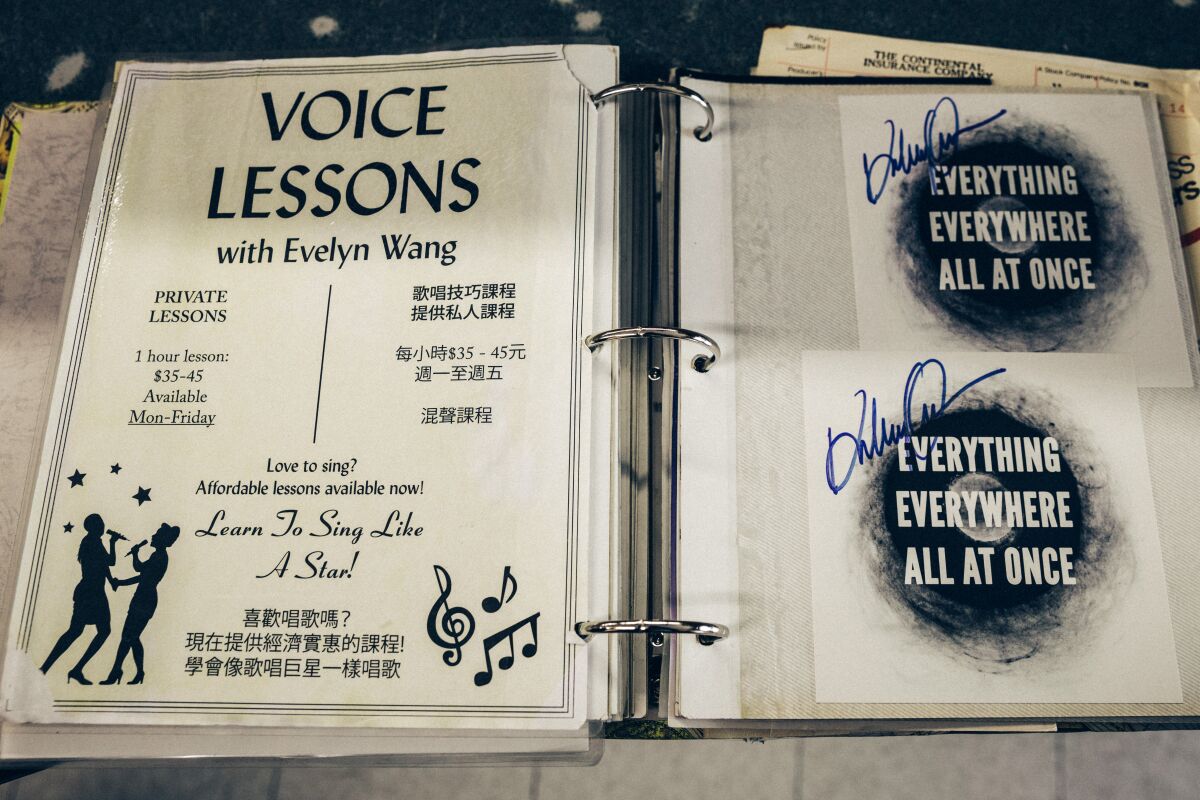 VOICE
LESSONS
with Evelyn Wang
PRIVATE
LESSONS
1 hour lesson:
$35-45
Available
Mon-Friday
歌唱技巧課程
提供私人課程
每小時$35 - 45元
週一至週五
混聲課程
Love to sing?
Affordable lessons available now!
Learn To Sing Like
A Star!
喜歡唱歌嗎?
現在提供經濟實惠的課程!
學會像歌唱巨星一樣唱歌
THE CONTINENTAL
INSURANCE COMPANY
A Stock Company
Policy No.
14
EVERYTHING
EVERYWHERE
ALL AT ONCE
EVERYTHING
EVERYWHERE
ALL AT ONCE